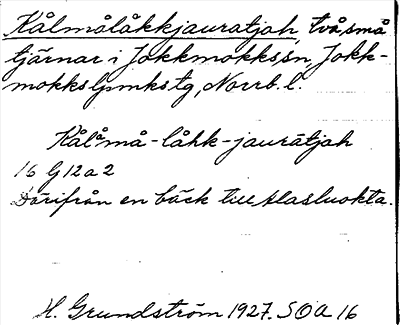 Kålmålåkkjauratjah, två små
tjärnar i Jokkmokks sn, Jokk-
mokks lpmks tg, Norrb. l.
Kålåmå-låhk-jaurātjah
16 G 12 a 2
Därifrån en bäck till Alasluokta.
H. Grundström 1927. SOA 16